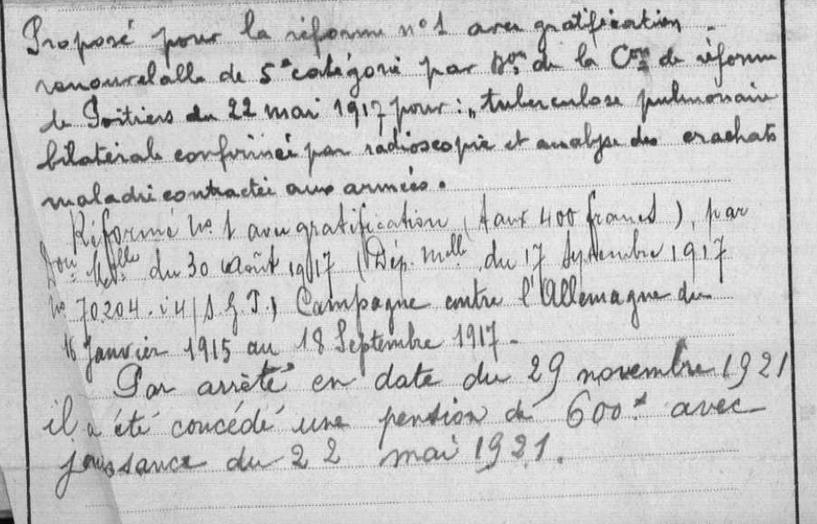 Proposé pour la réforme n°1 avec gratification
renouvelable de 5e catégorie par Don de la Con de réforme
de Poitiers du 22 mai 1917 pour : "tuberculose pulmonaire
bilatérale confirmée par radioscopie et analyse des crachats
maladie contractée aux armées.
Réformé No 1 avec gratification (taux 400 francs), par
Don Melle du 30 Août 1917 (Dép. Melle du 17 Septembre 1917
No 70204. i 4/S.G.P.) Campagne contre l'Allemagne du
16 Janvier 1915 au 18 Septembre 1917.
Par arrêté en date du 29 novembre 1921
il a été concédé une pension de 600f avec
jouissance du 22 mai 1921.